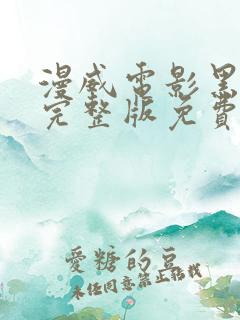 漫威電影黑
完整版免費
愛糖的豆
未经同意禁止搭载